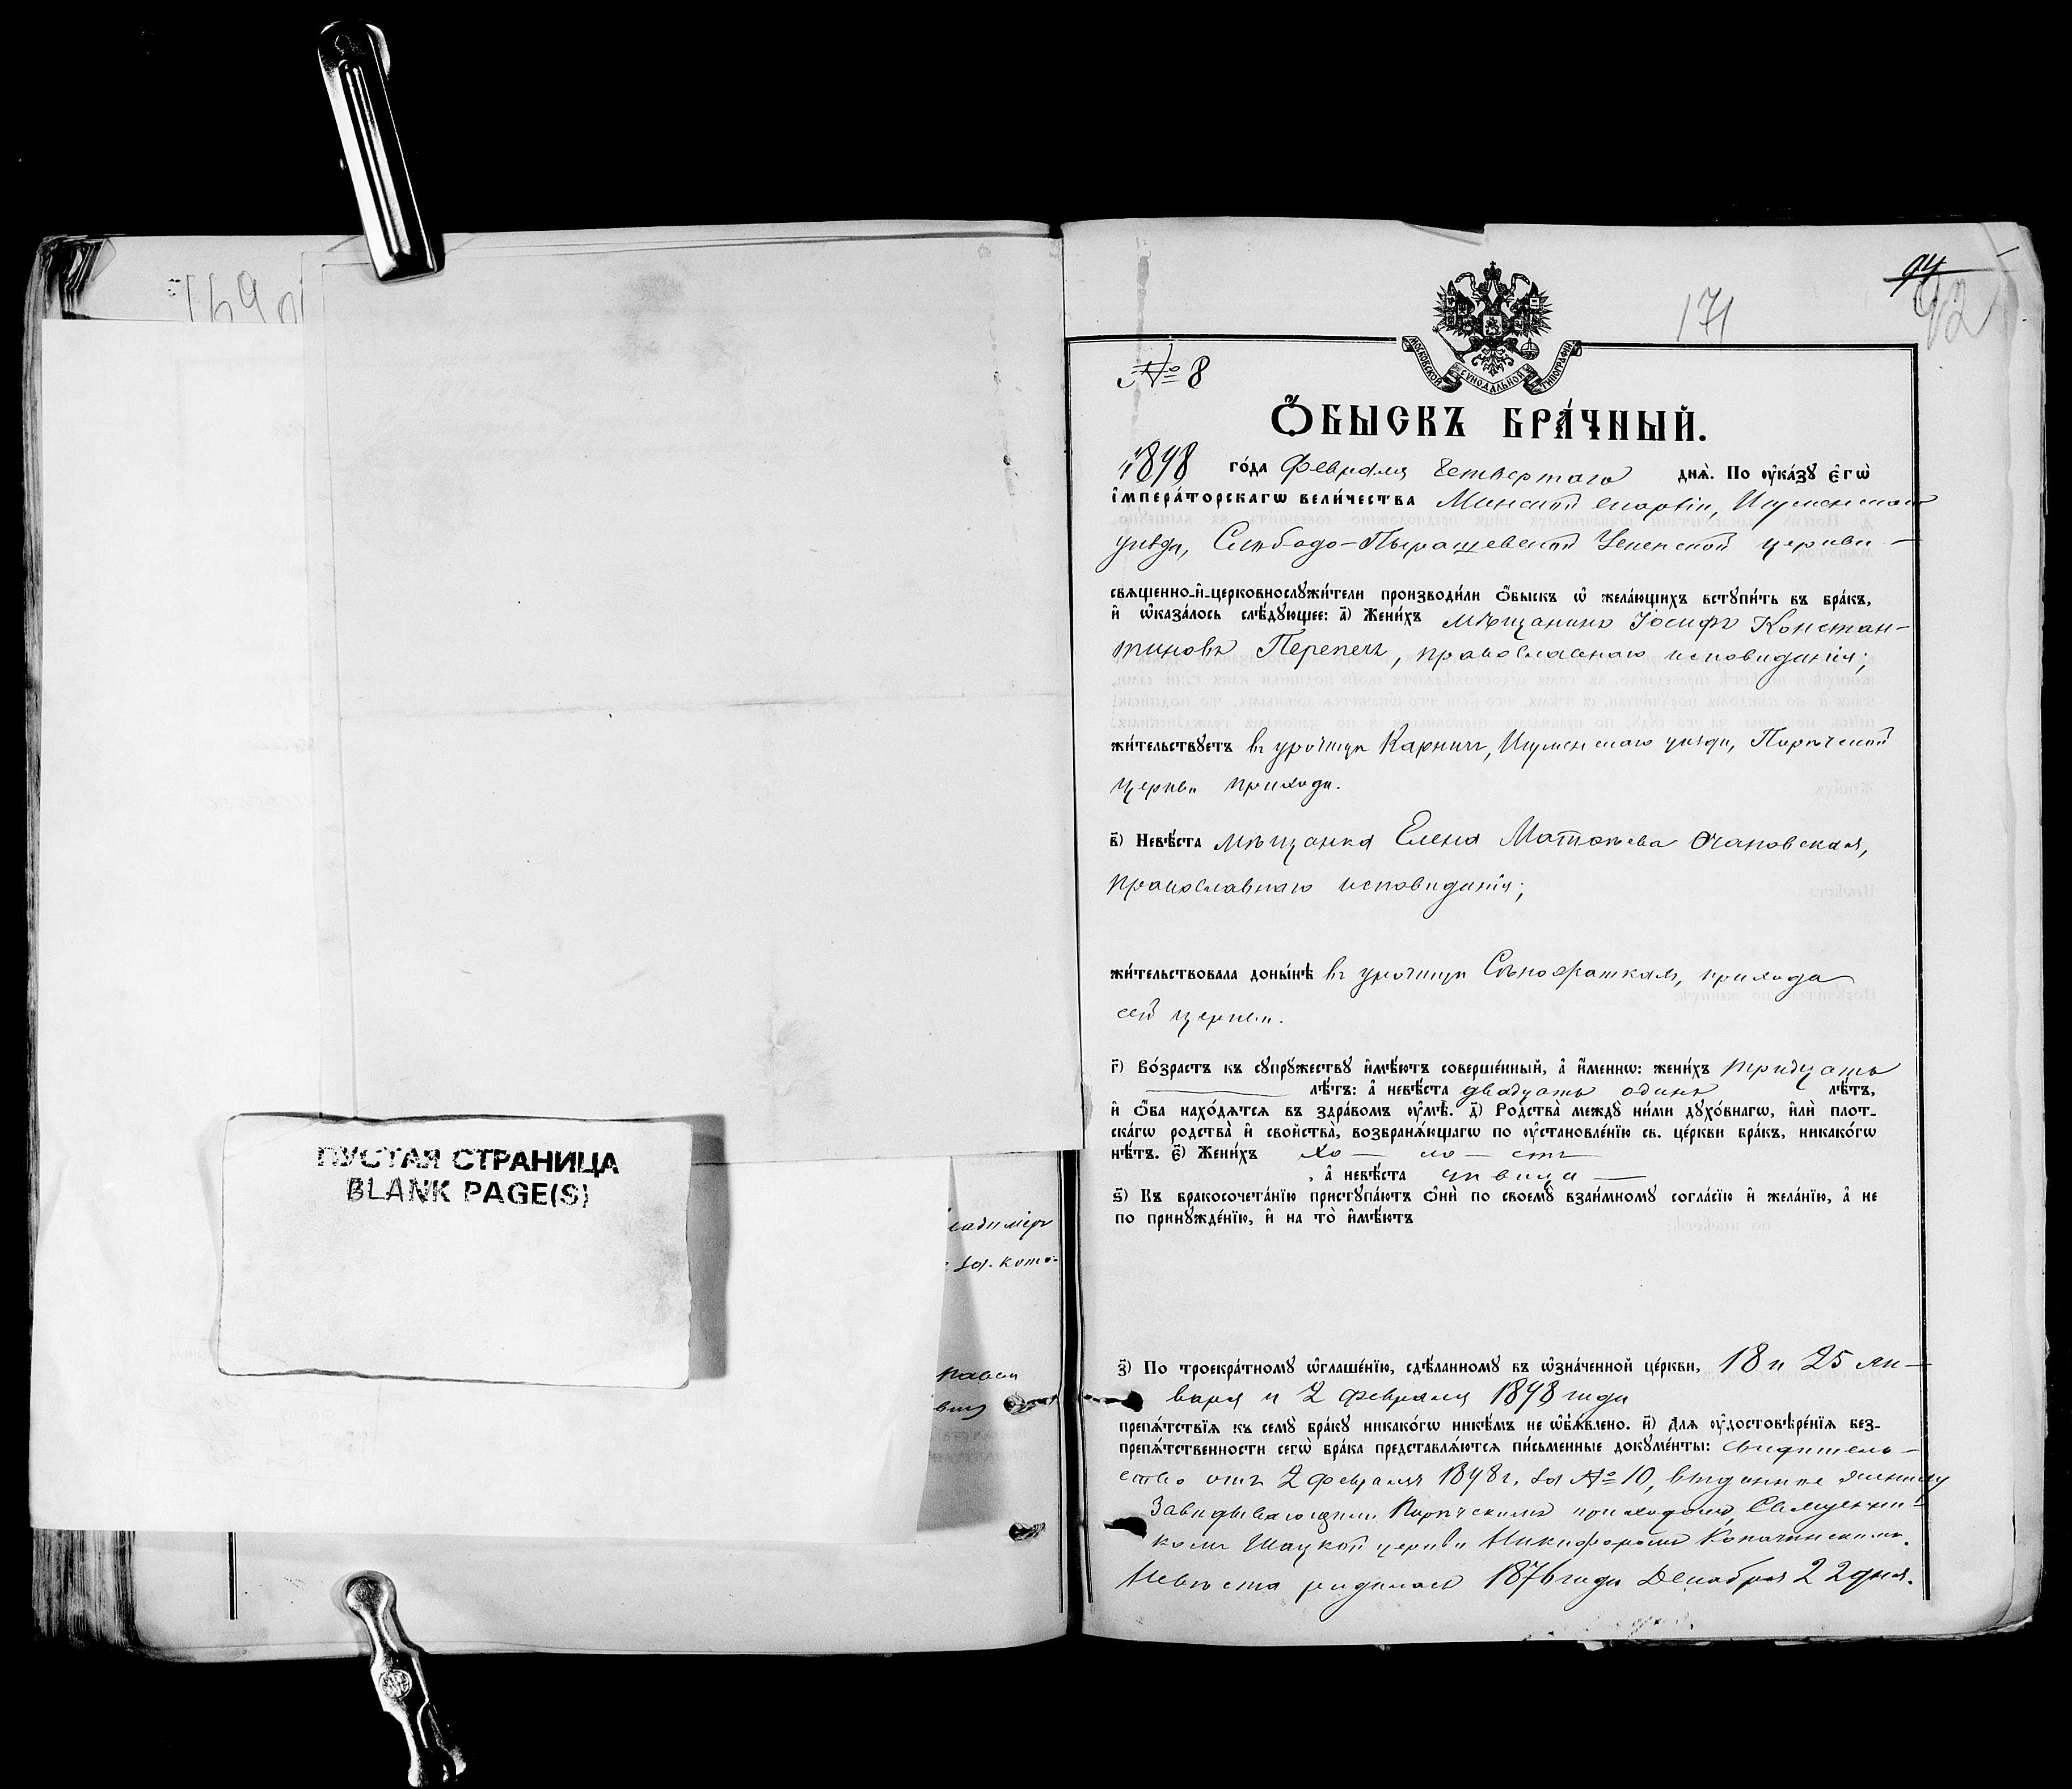 94
92
171
МОСКОВСКОЙ СѴНОДАЛЬНОЙ ТИПОГРАФІИ
№ 8
Ѻ҆БЫСКЪ БРА́ЧНЫЙ.
1898 го́да Февраля Четвертаго днѧ̀. По ᲂу҆ка́зꙋ є҆гѡ̀
і҆мпера́торскагѡ вели́чества Минской епархіи, Игуменскаго
уѣзда, Слободо-Пырашевской Успенской церкви
свѧщенно-и҆-церковнослꙋжи́тели производи́ли ѻ҆быскъ ѡ҆ жела́ющихъ встꙋпи́ть въ бра́къ,
и҆ ѡ҆каза́лось слѣ́дꙋющее: а҃) Жени́хъ мѣщанинъ Іосифъ Констан-
тиновъ Перепечъ, православнаго исповѣданія;
жи́тельствꙋетъ въ урочищѣ Карпичъ, Игуменскаго уѣзда, Порѣчской
церкви прихода.
в҃) Невѣ́ста мѣщанка Елена Матѳѣева
православнаго исповѣданія;
жи́тельствовала доны́нѣ въ урочищѣ прихода
сей церкви.
г҃) Во́зрастъ къ сꙋпрꙋ́жествꙋ и҆мѣ́ютъ соверше́нный, а҆ и҆́меннѡ: жени́хъ тридцать
лѣ́тъ: а҆ невѣ́ста двадцать одинъ лѣ́тъ,
и҆ ѻ҆́ба нахо́дѧтсѧ въ здра́вомъ ᲂу҆мѣ̀. д҃) Родства̀ междꙋ̀ ни́ми дꙋхо́внагѡ, и҆лѝ плот-
ска́гѡ родства̀ и҆ свойства̀, возбранѧ́ющагѡ по ᲂу҆становле́нїю св. це́ркви бра́къ, никако́гѡ
нѣ́тъ. є҃) Жени́хъ хо — ло — стъ
, а҆ невѣ́ста дѣвица —
ѕ҃) Къ бракосочета́нїю пристꙋпа́ютъ ѻ҆нѝ по своемꙋ̀ взаи́мномꙋ согла́сїю и҆ жела́нїю, а҆ не
по принꙋжде́нїю, и҆ на то̀ и҆мѣ́ютъ
з҃) По троекра́тномꙋ ѡ҆глаше́нїю, сдѣ́ланномꙋ въ ѡ҆зна́ченной це́ркви, 18 и 25 Ян-
варя и 2 февраля 1898 года
препѧ́тствїѧ къ семꙋ̀ бра́кꙋ никако́гѡ никѣ́мъ не ѡ҆б̾ѧ́влено. и҃) Длѧ ᲂу҆достовѣре́нїѧ без-
препѧ́тственности сегѡ̀ бра́ка представлѧ́ютсѧ пи́сьменные докꙋме́нты: свидѣтель-
ство отъ 2 февраля 1898 г. за № 10, выданное жениху
Завѣдывающимъ Порѣчскимъ приходомъ, Священни-
комъ Шацкой церкви Никифоромъ
Невѣста родилась 1876 года Декабря 22 дня.
ладиміръ
за кото-
ПУСТАЯ СТРАНИЦА
BLANK PAGE(S)